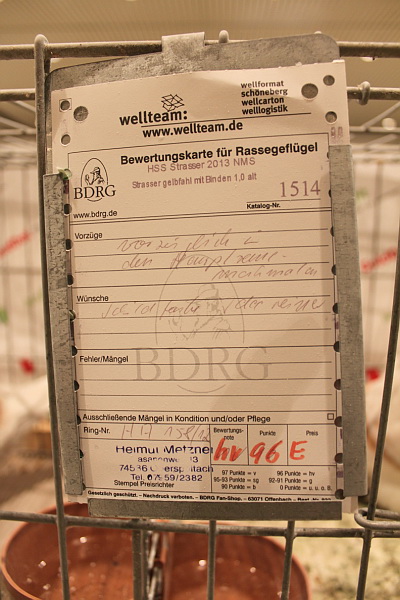 wellteam:
wellformat
schöneberg
wellcarton
welllogistik
www.wellteam.de
Bewertungskarte für Rassegeflügel
HSS Strasser 2013 NMS
Strasser gelbfahl mit Binden 1,0 alt
BDRG
1514
www.bdrg.de
Katalog-Nr.
Vorzüge
vorzüglich in
den Hauptrasse-
merkmalen
Wünsche
BDRG
Fehler/Mängel
Ausschließende Mängel in Kondition und/oder Pflege
Ring-Nr.
Bewertungs-
note
Punkte
Preis
hv 96 E
Helmut Metzner
Tel. 07959/2382
Stempel Preisrichter
97 Punkte = v
96 Punkte = hv
95-93 Punkte = sg
92-91 Punkte = g
90 Punkte = b
0 Punkte = u, o. B.
Gesetzlich geschützt. - Nachdruck verboten. - BDRG Fan-Shop. - 63071 Offenbach - Best.